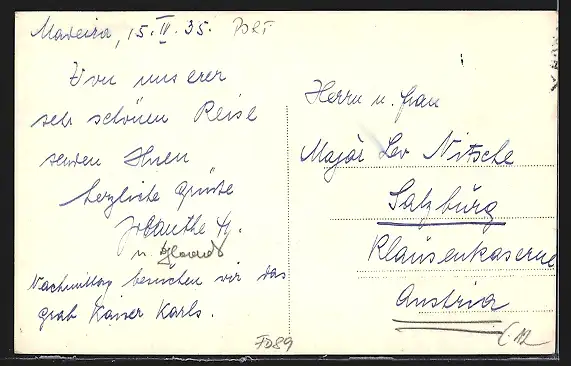 Madeira, 15.IV.35. PORT
Von unserer
sehr schönen Reise
senden Ihnen
herzliche Grüße
u.
Nachmittag besuchen wir das
Grab Kaiser Karls.
Herrn u. Frau
Major Leo Nitsche
Salzburg
Klausenkaserne
Austria
FD89